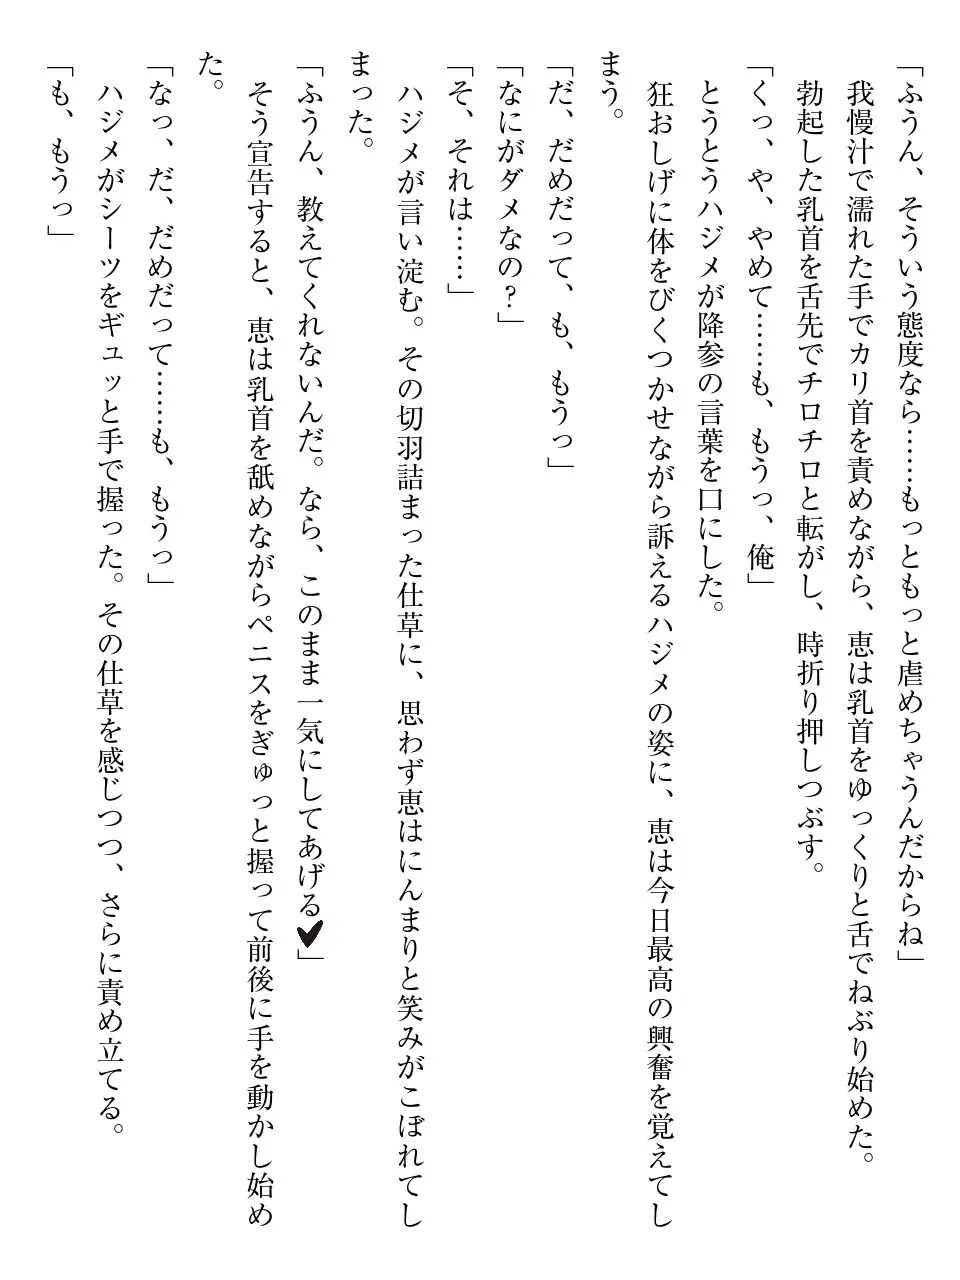 「ふうん、そういう態度なら……もっともっと虐めちゃうんだからね」
我慢汁で濡れた手でカリ首を責めながら、恵は乳首をゆっくりと舌でねぶり始めた。
勃起した乳首を舌先でチロチロと転がし、時折り押しつぶす。
「くっ、や、やめて……も、もうっ、俺」
とうとうハジメが降参の言葉を口にした。
狂おしげに体をびくつかせながら訴えるハジメの姿に、恵は今日最高の興奮を覚えてし
まう。
「だ、だめだって、も、もうっ」
「なにがダメなの？」
「そ、それは……」
ハジメが言い淀む。その切羽詰まった仕草に、思わず恵はにんまりと笑みがこぼれてし
まった。
「ふうん、教えてくれないんだ。なら、このまま一気にしてあげる♥」
そう宣告すると、恵は乳首を舐めながらペニスをぎゅっと握って前後に手を動かし始め
た。
「なっ、だ、だめだって……も、もうっ」
ハジメがシーツをギュッと手で握った。その仕草を感じつつ、さらに責め立てる。
「も、もうっ」